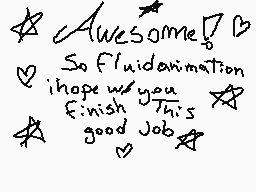 Awesome!
So fluidanimation
ihope you
finish This
good Job